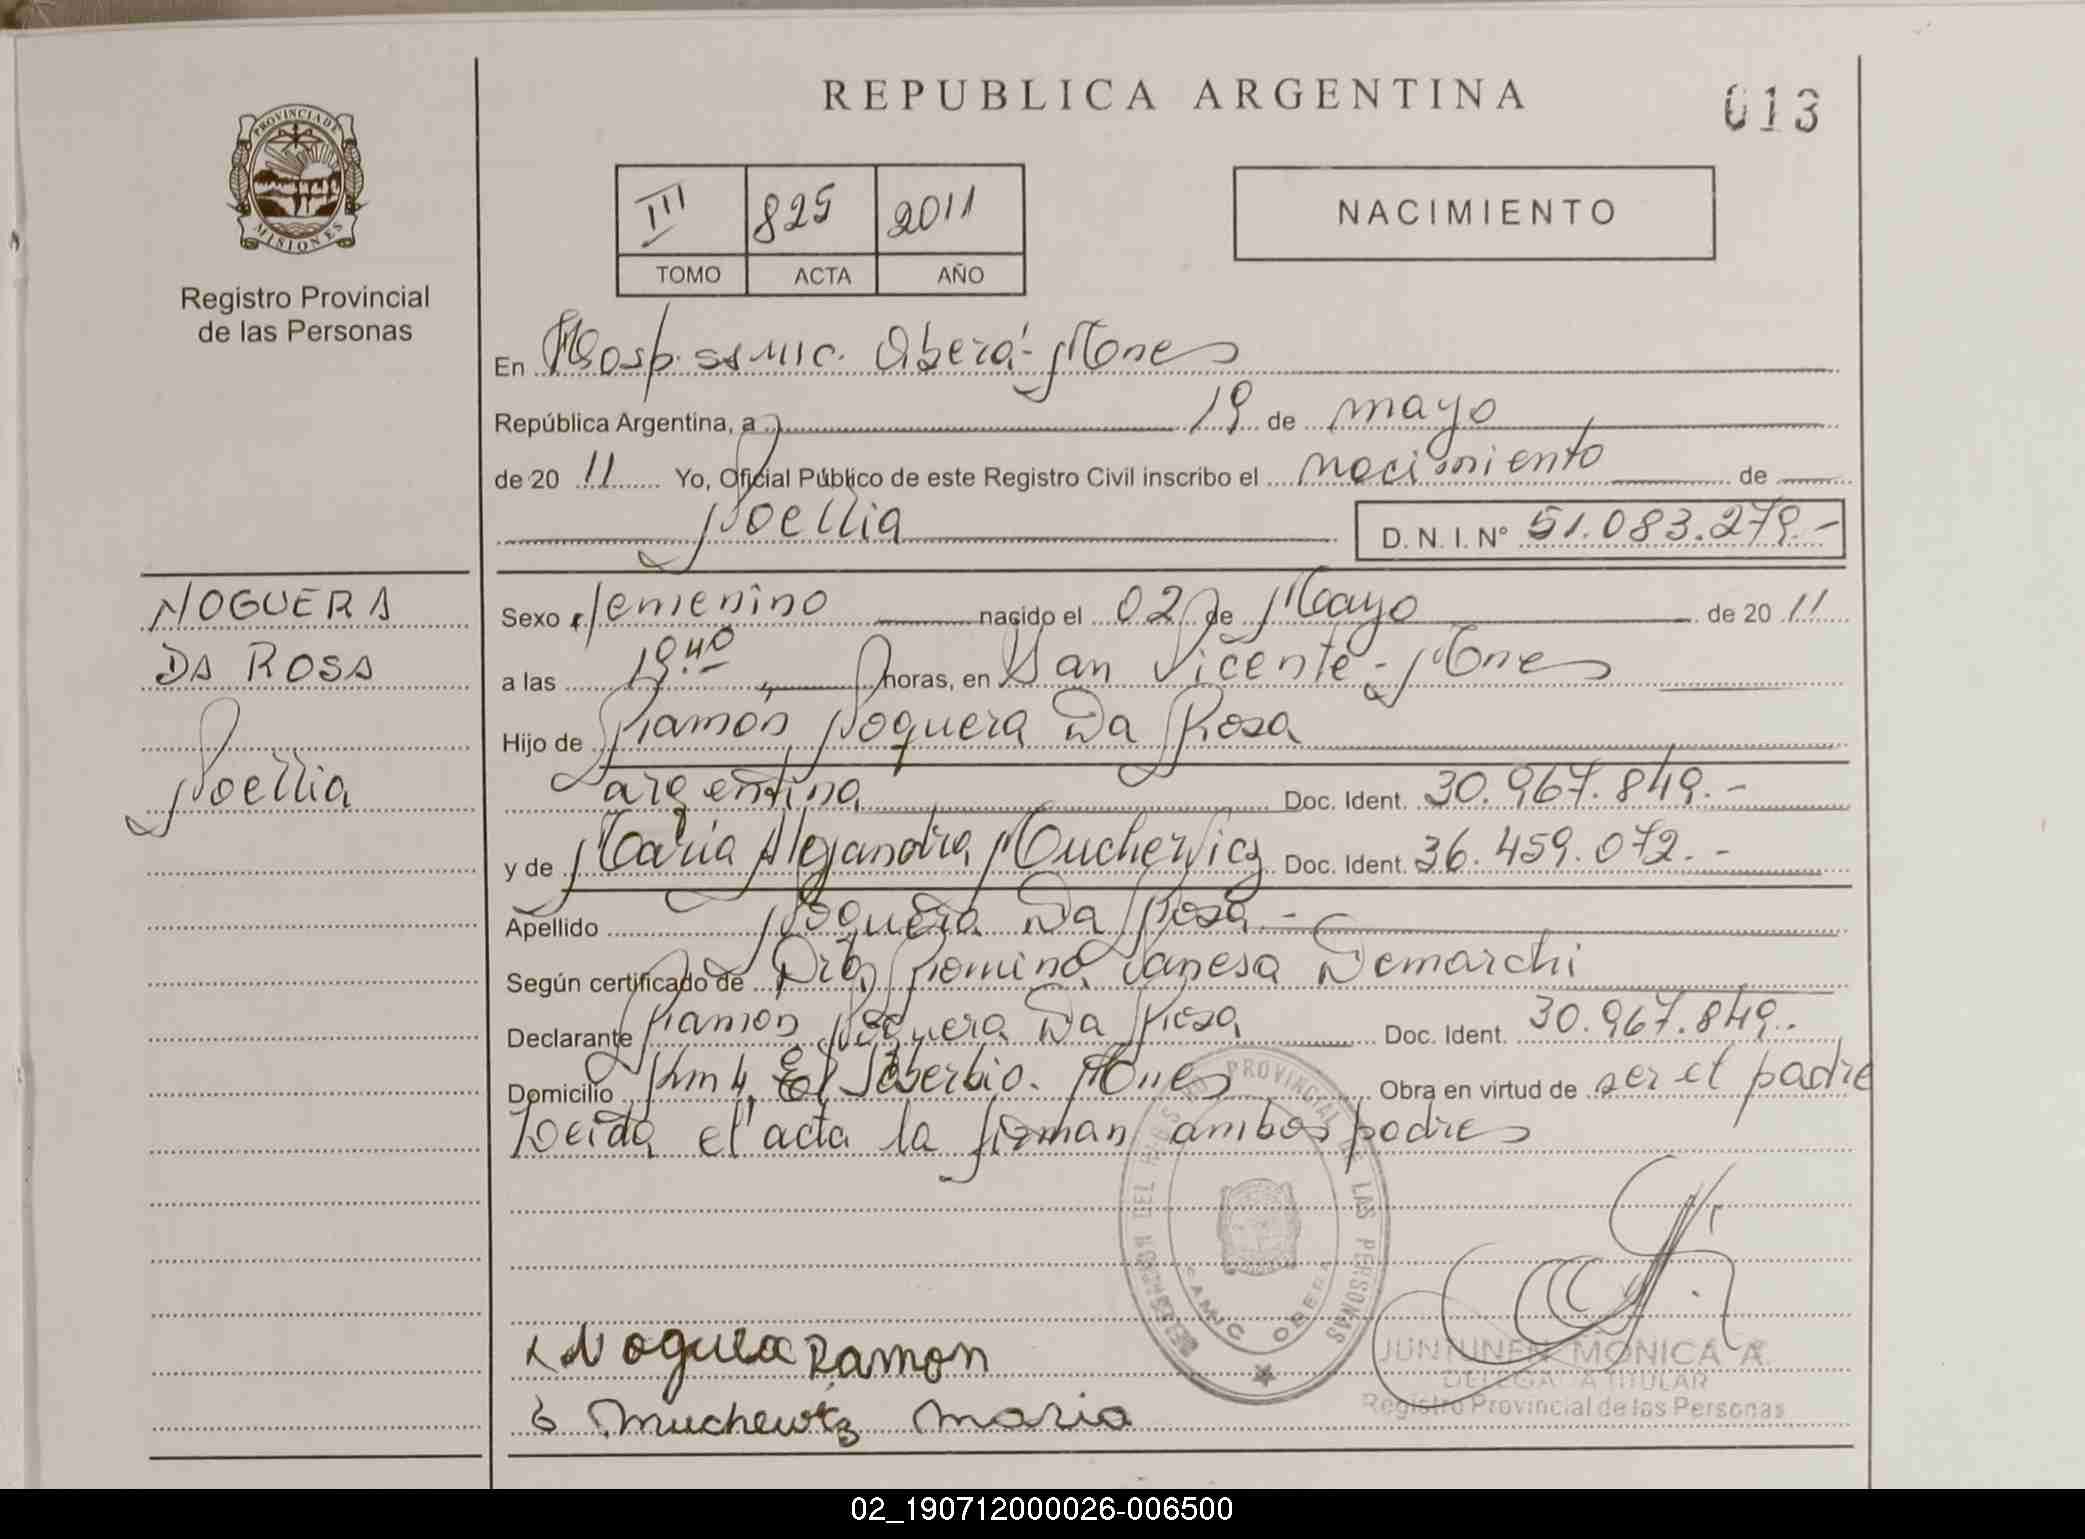 REPUBLICA ARGENTINA
013
PROVINCIA DE
MISIONES
Registro Provincial
de las Personas
III 825 2011
TOMO ACTA AÑO
NACIMIENTO
En Hosp. Obera- Mnes
República Argentina, a 19 de mayo
de 20 11 Yo, Oficial Público de este Registro Civil inscribo el nacimiento de
Noellia D. N. I. Nº 51.083.279.-
NOGUERA
DA ROSA
Noellia
Sexo femenino nacido el 02 de Mayo de 20 11
a las 19.40 horas, en San Vicente - Mnes
Hijo de Ramón Noguera Da Rosa
argentina Doc. Ident. 30.967.849.-
y de María Alejandra Muchewicz Doc. Ident. 36.459.072.-
Apellido Noguera Da Rosa -
Según certificado de Dra. Romina Vanesa Demarchi
Declarante Ramón Noguera Da Rosa Doc. Ident. 30.967.849.-
Domicilio Km 4, El Soberbio. Mnes Obra en virtud de ser el padre
Leída el acta la firman ambos padres
PROVINCIAL DE LAS PERSONAS
SAMIC OBERA
Noguera Ramon
Muchewicz Maria
JUNTUNEN MONICA A.
DELEGADA TITULAR
Registro Provincial de las Personas
02_190712000026-006500